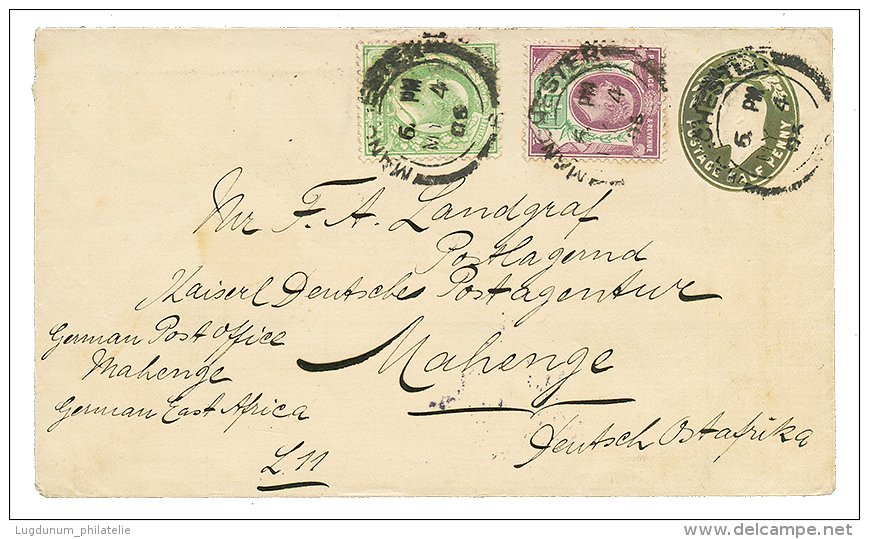 MANCHESTER
6. PM
MY 4
08
MANCHESTER
6. PM
MY 4
08
& REVENUE
MANCHESTER
6 PM
MY 4
08
POSTAGE HALF PENNY
Mr F. A. Landgraf
Postlagernd
Kaiserl Deutsches Postagentur
Mahenge
Deutsch Ostafrika
German Post Office
Mahenge
German East Africa
L. 11
Lugdunum_philatelie
© www.delcampe.net